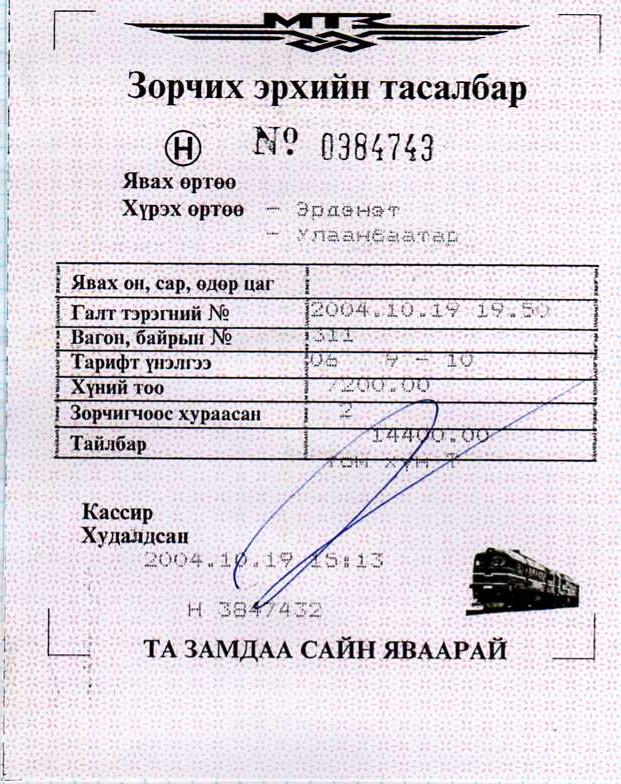 МТЗ
Зорчих эрхийн тасалбар
Н № 0384743
Явах өртөө
Хүрэх өртөө - Эрдэнэт
- Улаанбаатар
Явах он, сар, өдөр цаг
Галт тэрэгний № 2004.10.19 19.50
Вагон, байрын № 311
Тарифт үнэлгээ 06 9 - 10
Хүний тоо 7200.00
Зорчигчоос хураасан 2
Тайлбар 14400.00
том хүн Т
Кассир
Худалдсан
2004.10.19 15:13
Н 3847432
ТА ЗАМДАА САЙН ЯВААРАЙ